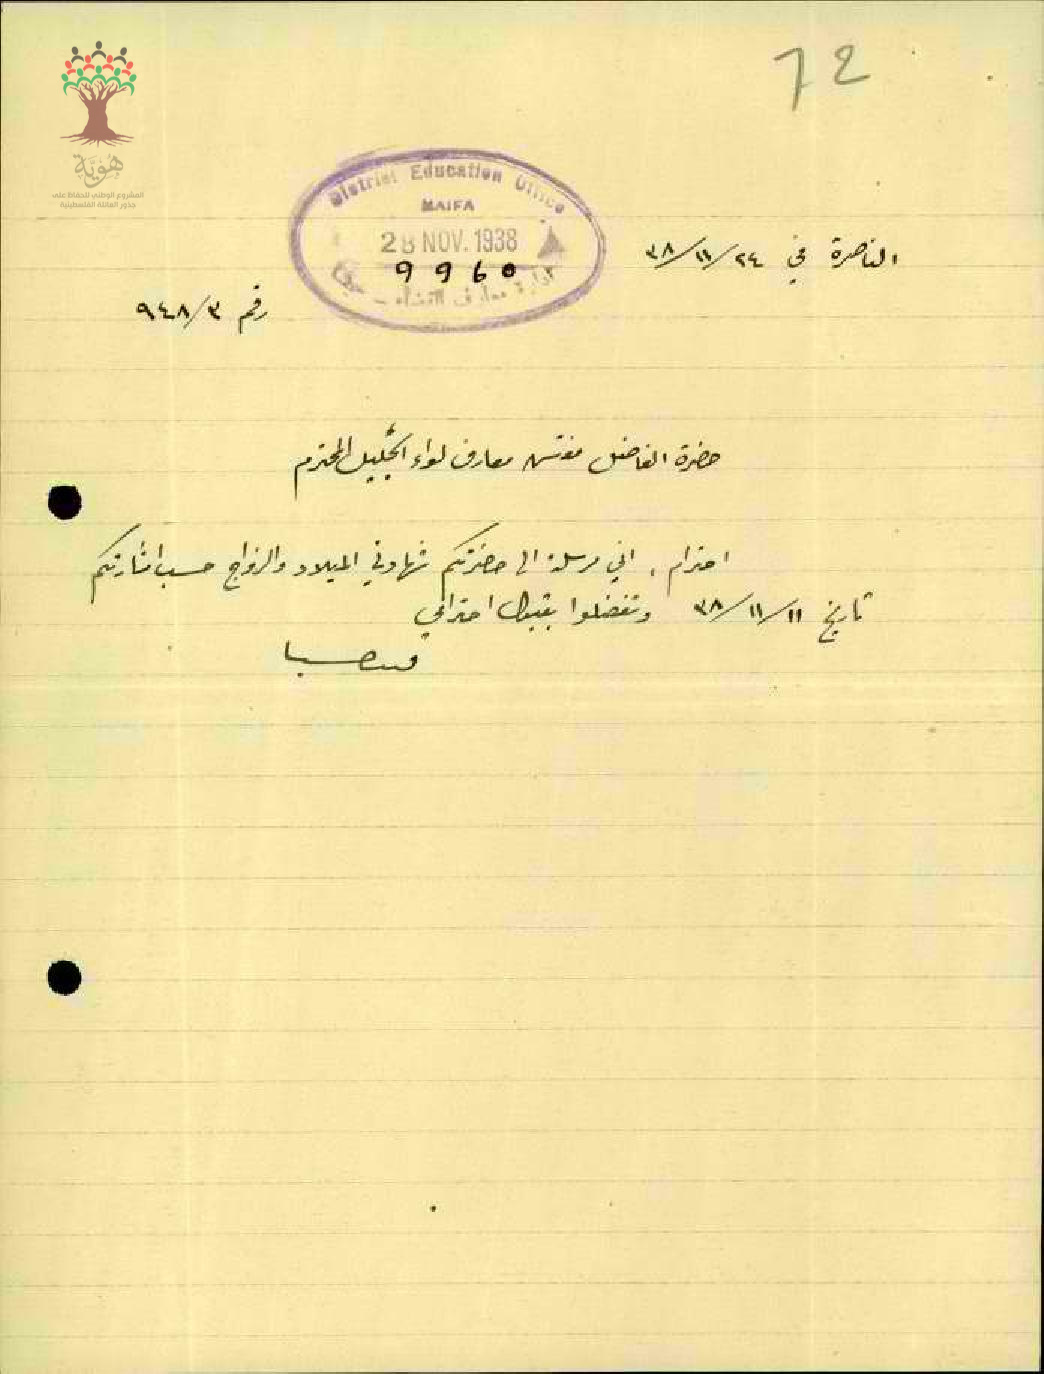 72
هوية
المشروع الوطني للحفاظ على
جذور العائلة الفلسطينية
District Education Office
HAIFA
28 NOV. 1938
9960
الناصرة في ٢٤/١١/٣٨
رقم ٩٤٨/٣
حضرة الفاضل مفتش معارف لواء الجليل المحترم
احترام، اني مرسلة الى حضرتكم شهادتي الميلاد والزواج حسب اشارتكم
تاريخ ١١/١١/٣٨ وتفضلوا بقبول احترامي